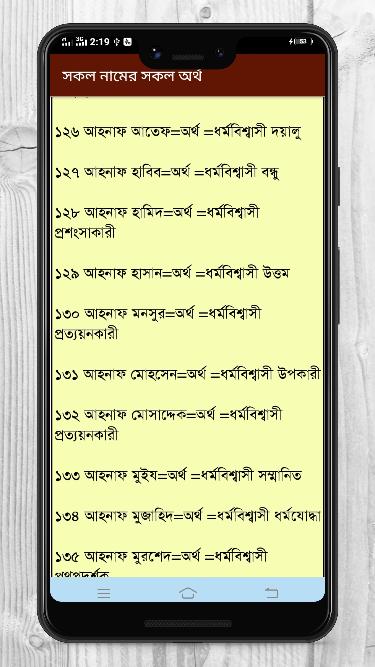 2:19
সকল নামের সকল অর্থ
১২৬ আহনাফ আতেফ=অর্থ =ধর্মবিশ্বাসী দয়ালু
১২৭ আহনাফ হাবিব=অর্থ =ধর্মবিশ্বাসী বন্ধু
১২৮ আহনাফ হামিদ=অর্থ =ধর্মবিশ্বাসী
প্রশংসাকারী
১২৯ আহনাফ হাসান=অর্থ =ধর্মবিশ্বাসী উত্তম
১৩০ আহনাফ মনসুর=অর্থ =ধর্মবিশ্বাসী
প্রত্যয়নকারী
১৩১ আহনাফ মোহসেন=অর্থ =ধর্মবিশ্বাসী উপকারী
১৩২ আহনাফ মোসাদ্দেক=অর্থ =ধর্মবিশ্বাসী
প্রত্যয়নকারী
১৩৩ আহনাফ মুইয=অর্থ =ধর্মবিশ্বাসী সম্মানিত
১৩৪ আহনাফ মুজাহিদ=অর্থ =ধর্মবিশ্বাসী ধর্মযোদ্ধা
১৩৫ আহনাফ মুরশেদ=অর্থ =ধর্মবিশ্বাসী